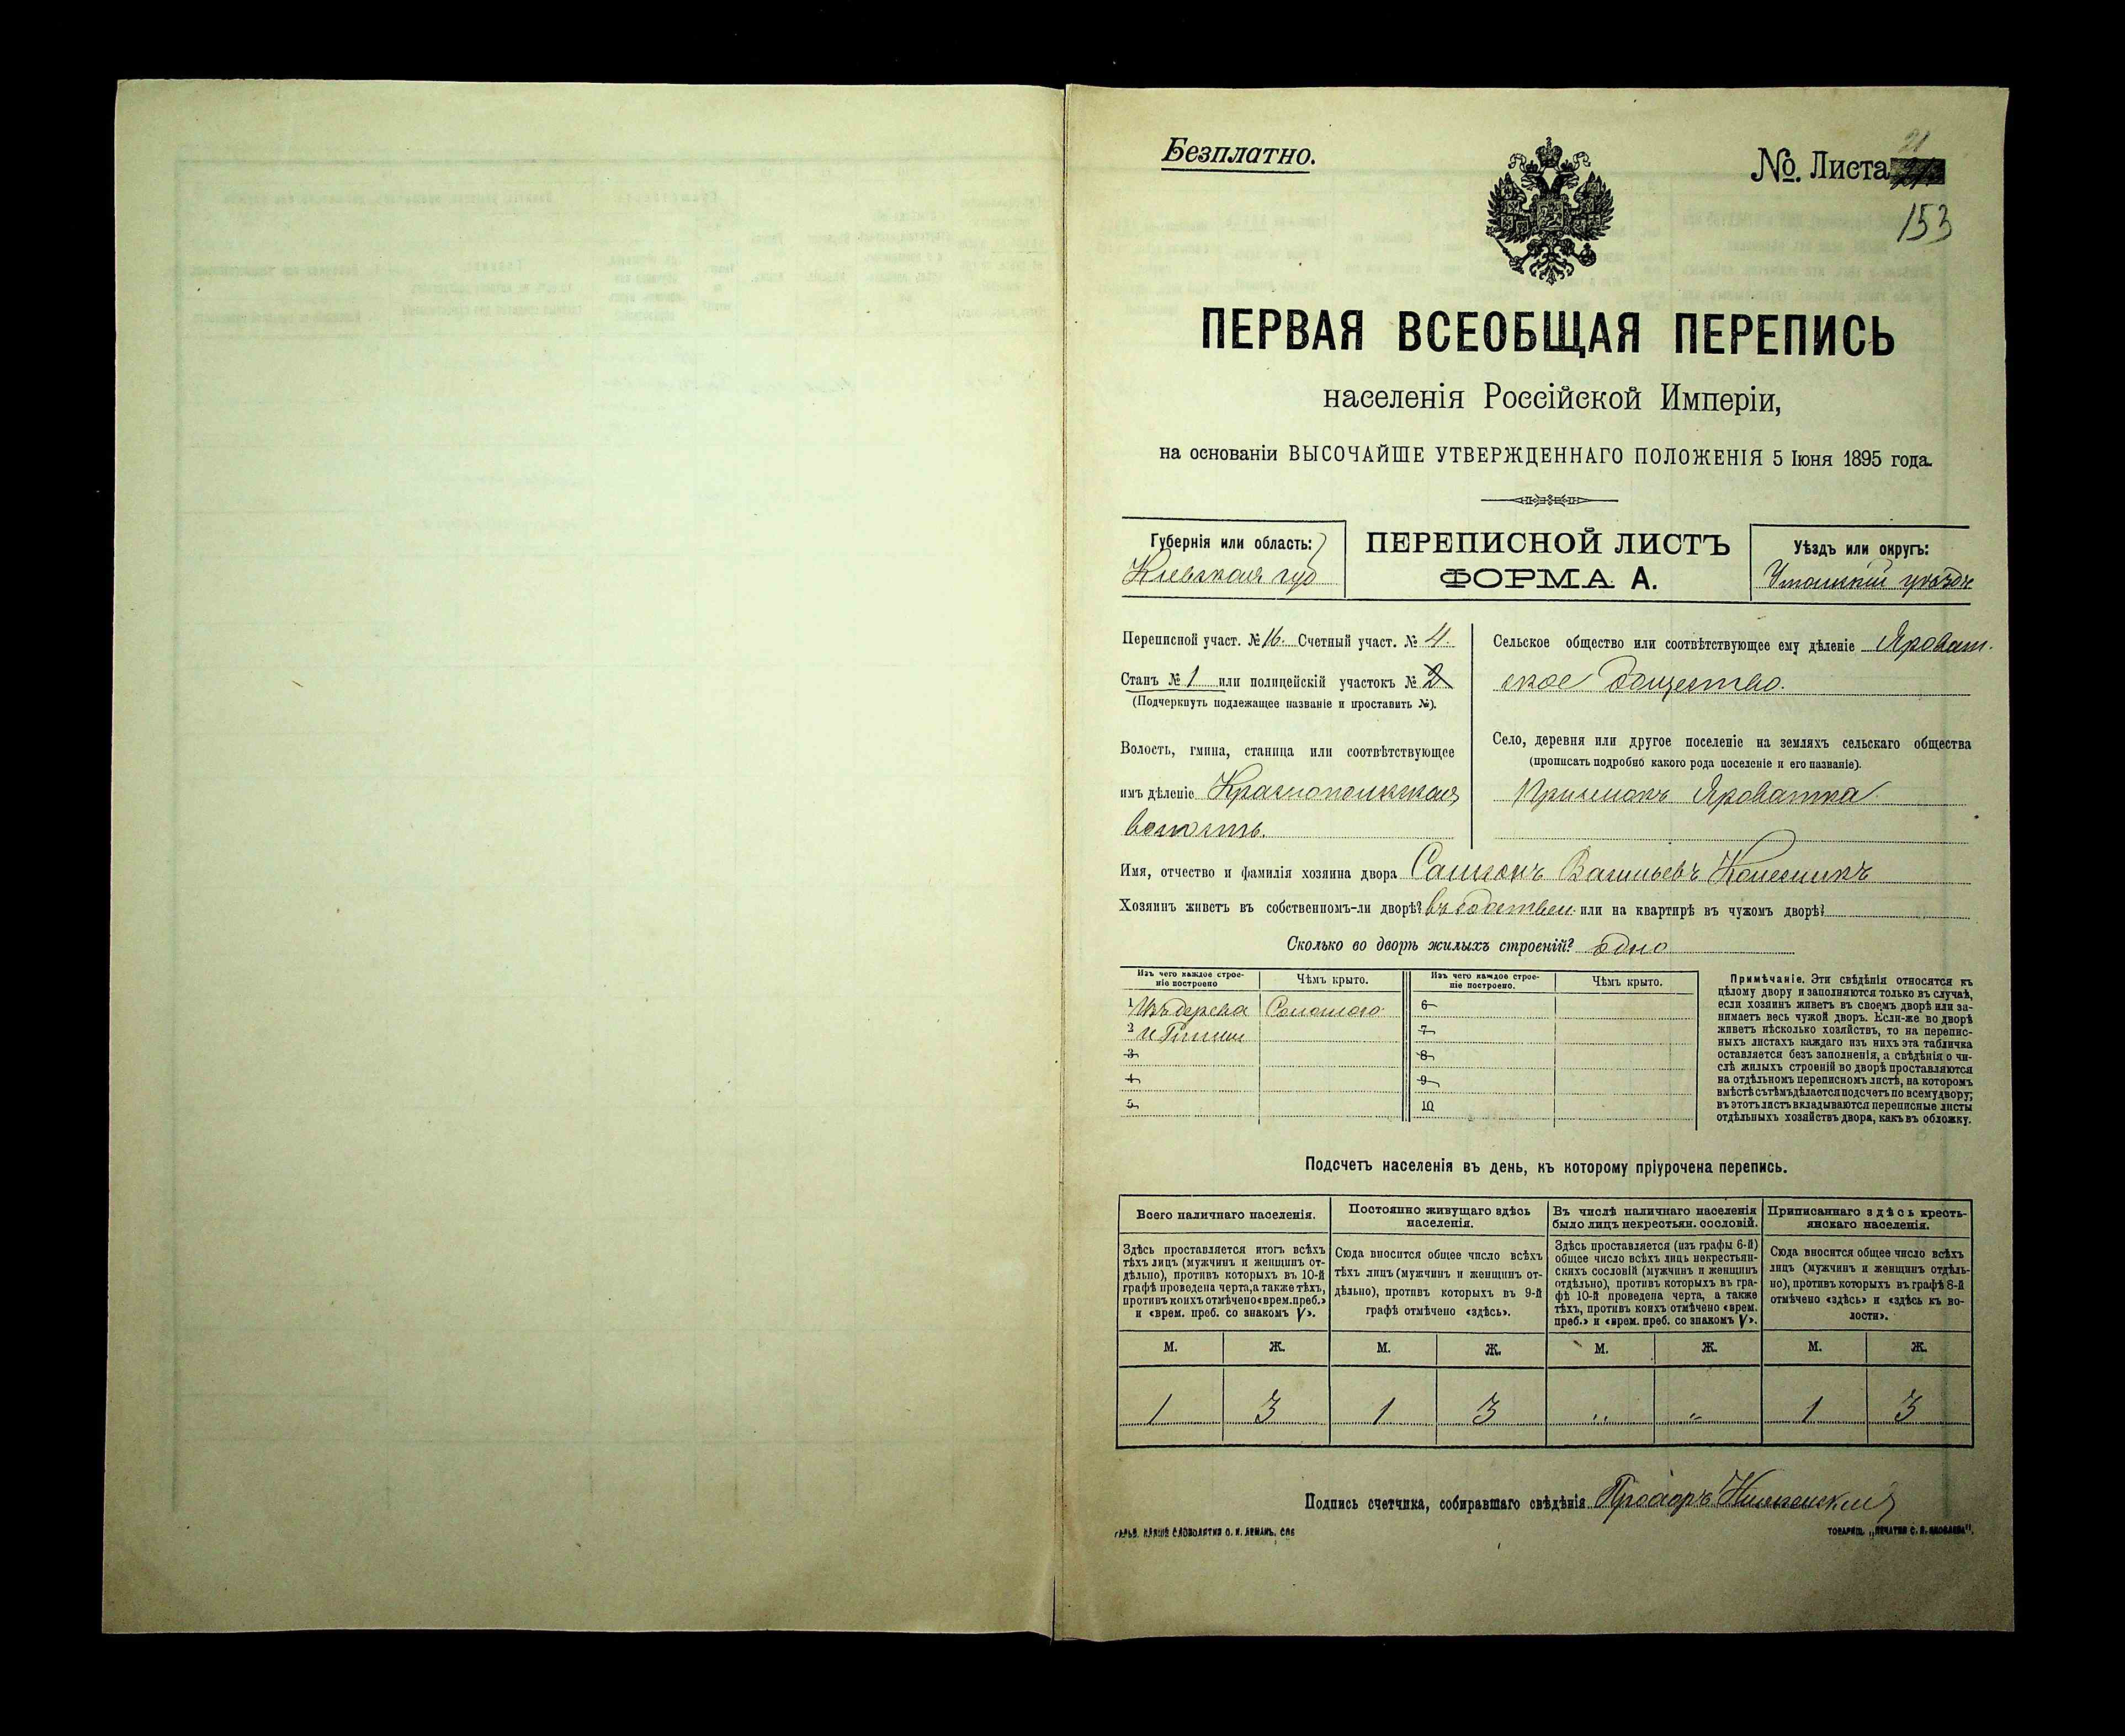 Безплатно.
№. Листа 21
153
ПЕРВАЯ ВСЕОБЩАЯ ПЕРЕПИСЬ
населенія Россійской Имперіи,
на основаніи ВЫСОЧАЙШЕ УТВЕРЖДЕННАГО ПОЛОЖЕНІЯ 5 Іюня 1895 года.
Губернія или область:
Кіевская губ
ПЕРЕПИСНОЙ ЛИСТЪ
ФОРМА А.
Уѣздъ или округъ:
Уманскій уѣздъ
Переписной участ. № 16. Счетный участ. № 4.
Станъ № 1 или полицейскій участокъ № 2
(Подчеркнуть подлежащее названіе и проставить №).
Волость, гмина, станица или соотвѣтствующее
имъ дѣленіе Краснопольская
волость.
Сельское общество или соотвѣтствующее ему дѣленіе Яроват.
ское общество.
Село, деревня или другое поселеніе на земляхъ сельскаго общества
(прописать подробно какого рода поселеніе и его названіе).
Яроватка
Имя, отчество и фамилія хозяина двора Самсонъ Васильевъ Колесникъ
Хозяинъ живетъ въ собственномъ-ли дворѣ? въ собствен. или на квартирѣ въ чужомъ дворѣ?
Сколько во дворѣ жилыхъ строеній? одно
Изъ чего каждое строе-
ніе построено
Чѣмъ крыто.
Изъ чего каждое строе-
ніе построено.
Чѣмъ крыто.
1 Изъ дерева Соломою
2 и Глины
3
4
5
6
7
8
9
10
Примѣчаніе. Эти свѣдѣнія относятся къ
цѣлому двору и заполняются только въ случаѣ,
если хозяинъ живетъ въ своемъ дворѣ или за-
нимаетъ весь чужой дворъ. Если-же во дворѣ
живетъ нѣсколько хозяйствъ, то на перепис-
ныхъ листахъ каждаго изъ нихъ эта табличка
оставляется безъ заполненія, а свѣдѣнія о чи-
слѣ жилыхъ строеній во дворѣ проставляются
на отдѣльномъ переписномъ листѣ, на которомъ
вмѣстѣ съ тѣмъ дѣлается подсчетъ по всему двору;
въ этотъ листъ вкладываются переписные листы
отдѣльныхъ хозяйствъ двора, какъ въ обложку.
Подсчетъ населенія въ день, къ которому пріурочена перепись.
Всего наличнаго населенія.
Постоянно живущаго здѣсь
населенія.
Въ числѣ наличнаго населенія
было лицъ некрестьян. сословій.
Приписаннаго здѣсь кресть-
янскаго населенія.
Здѣсь проставляется итогъ всѣхъ
тѣхъ лицъ (мужчинъ и женщинъ от-
дѣльно), противъ которыхъ въ 10-й
графѣ проведена черта, а также тѣхъ,
противъ коихъ отмѣчено «врем. преб.»
и «врем. преб. со знакомъ V».
Сюда вносится общее число всѣхъ
тѣхъ лицъ (мужчинъ и женщинъ от-
дѣльно), противъ которыхъ въ 9-й
графѣ отмѣчено «здѣсь».
Здѣсь проставляется (изъ графы 6-й)
общее число всѣхъ лицъ некрестьян-
скихъ сословій (мужчинъ и женщинъ
отдѣльно), противъ которыхъ въ гра-
фѣ 10-й проведена черта, а также
тѣхъ, противъ коихъ отмѣчено «врем.
преб.» и «врем. преб. со знакомъ V».
Сюда вносится общее число всѣхъ
лицъ (мужчинъ и женщинъ отдѣль-
но), противъ которыхъ въ графѣ 8-й
отмѣчено «здѣсь» и «здѣсь къ во-
лости».
М. Ж. М. Ж. М. Ж. М. Ж.
1 3 1 3 „ „ 1 3
Подпись счетчика, собиравшаго свѣдѣнія Прохоръ
СЛОВОЛИТНЯ О. И. ЛЕМАНЪ, СПБ
ТОВАРИЩ. „ПЕЧАТНЯ С. П. ЯКОВЛЕВА".